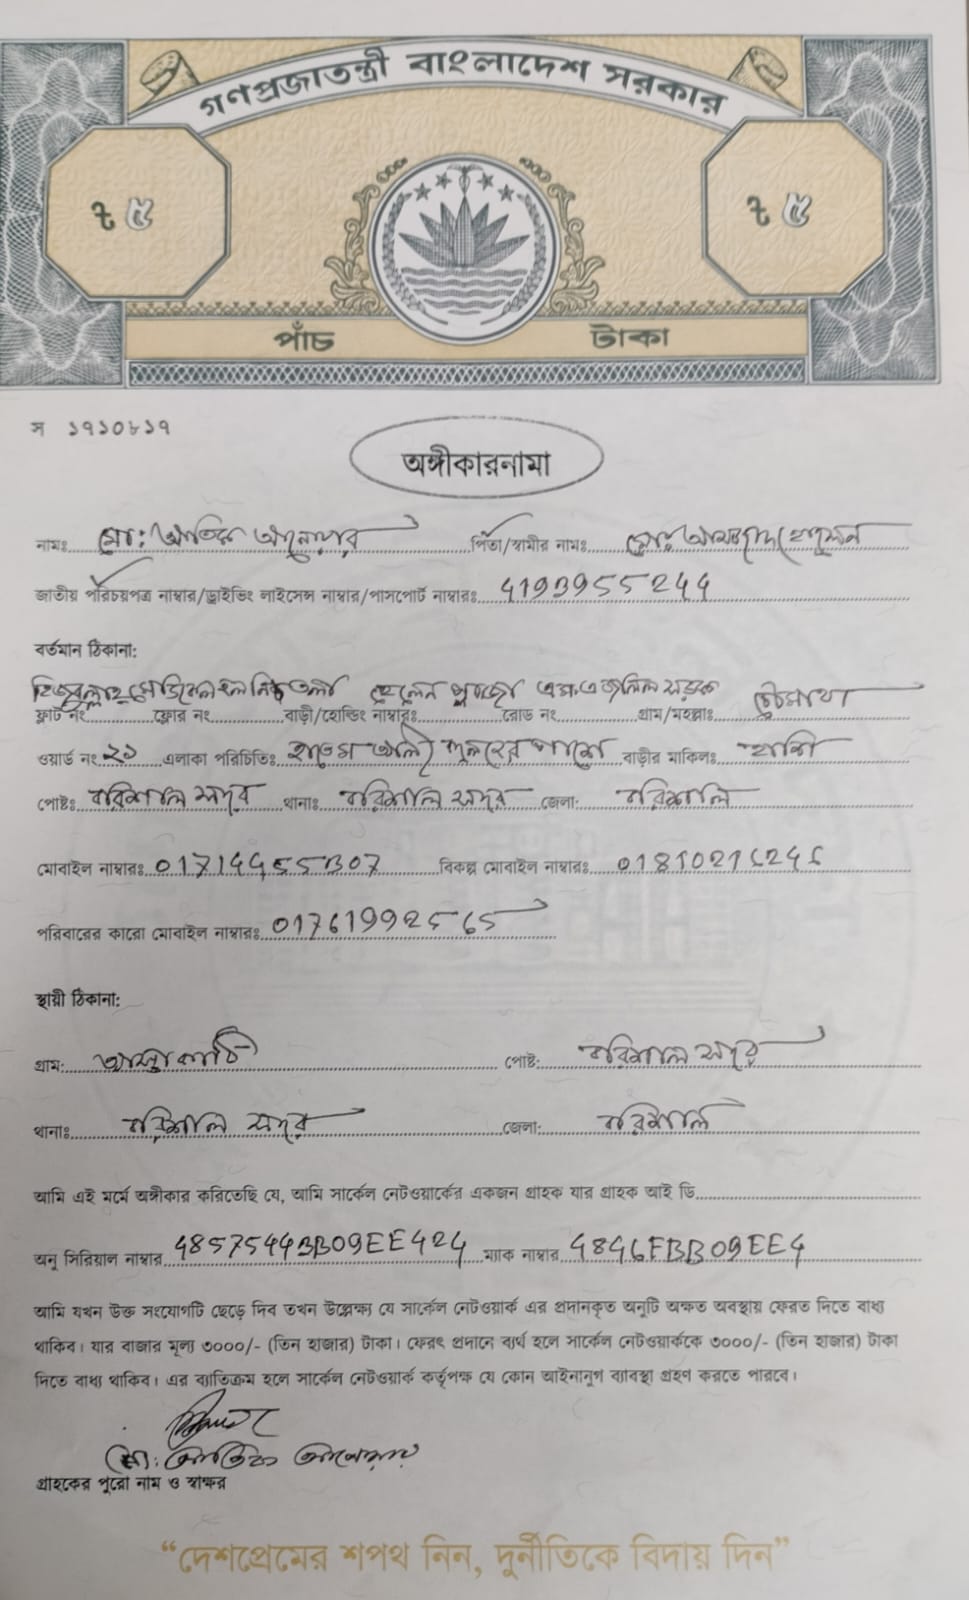 গণপ্রজাতন্ত্রী বাংলাদেশ সরকার
৳ ৫ ৳ ৫
পাঁচ টাকা
স ১৭১০৮১৭
অঙ্গীকারনামা
নামঃ মোঃ আতিক আনোয়ার পিতা/স্বামীর নামঃ মোঃ হোসেন
জাতীয় পরিচয়পত্র নাম্বার/ড্রাইভিং লাইসেন্স নাম্বার/পাসপোর্ট নাম্বারঃ 4193955244
বর্তমান ঠিকানা:
সড়ক চৌমাথা
ফ্লাট নং ফ্লোর নং বাড়ী/হোল্ডিং নাম্বারঃ রোড নং গ্রাম/মহল্লাঃ
ওয়ার্ড নং ২১ এলাকা পরিচিতিঃ হাতেম আলী পাশে বাড়ীর মাকিলঃ
পোষ্টঃ বরিশাল সদর থানাঃ বরিশাল সদর জেলা: বরিশাল
মোবাইল নাম্বারঃ 01714455307 বিকল্প মোবাইল নাম্বারঃ
পরিবারের কারো মোবাইল নাম্বারঃ 01761992565
স্থায়ী ঠিকানা:
গ্রাম: পোষ্ট: বরিশাল সদর
থানাঃ বরিশাল সদর জেলা: বরিশাল
আমি এই মর্মে অঙ্গীকার করিতেছি যে, আমি সার্কেল নেটওয়ার্কের একজন গ্রাহক যার গ্রাহক আই ডি
অনু সিরিয়াল নাম্বার 48575443BB09EE424 ম্যাক নাম্বার 4846FBB09EE4
আমি যখন উক্ত সংযোগটি ছেড়ে দিব তখন উল্লেক্ষ্য যে সার্কেল নেটওয়ার্ক এর প্রদানকৃত অনুটি অক্ষত অবস্থায় ফেরত দিতে বাধ্য
থাকিব। যার বাজার মূল্য ৩০০০/- (তিন হাজার) টাকা। ফেরৎ প্রদানে ব্যর্থ হলে সার্কেল নেটওয়ার্ককে ৩০০০/- (তিন হাজার) টাকা
দিতে বাধ্য থাকিব। এর ব্যাতিক্রম হলে সার্কেল নেটওয়ার্ক কর্তৃপক্ষ যে কোন আইনানুগ ব্যাবস্থা গ্রহণ করতে পারবে।
মোঃ আতিক আনোয়ার
গ্রাহকের পুরো নাম ও স্বাক্ষর
“দেশপ্রেমের শপথ নিন, দুর্নীতিকে বিদায় দিন”